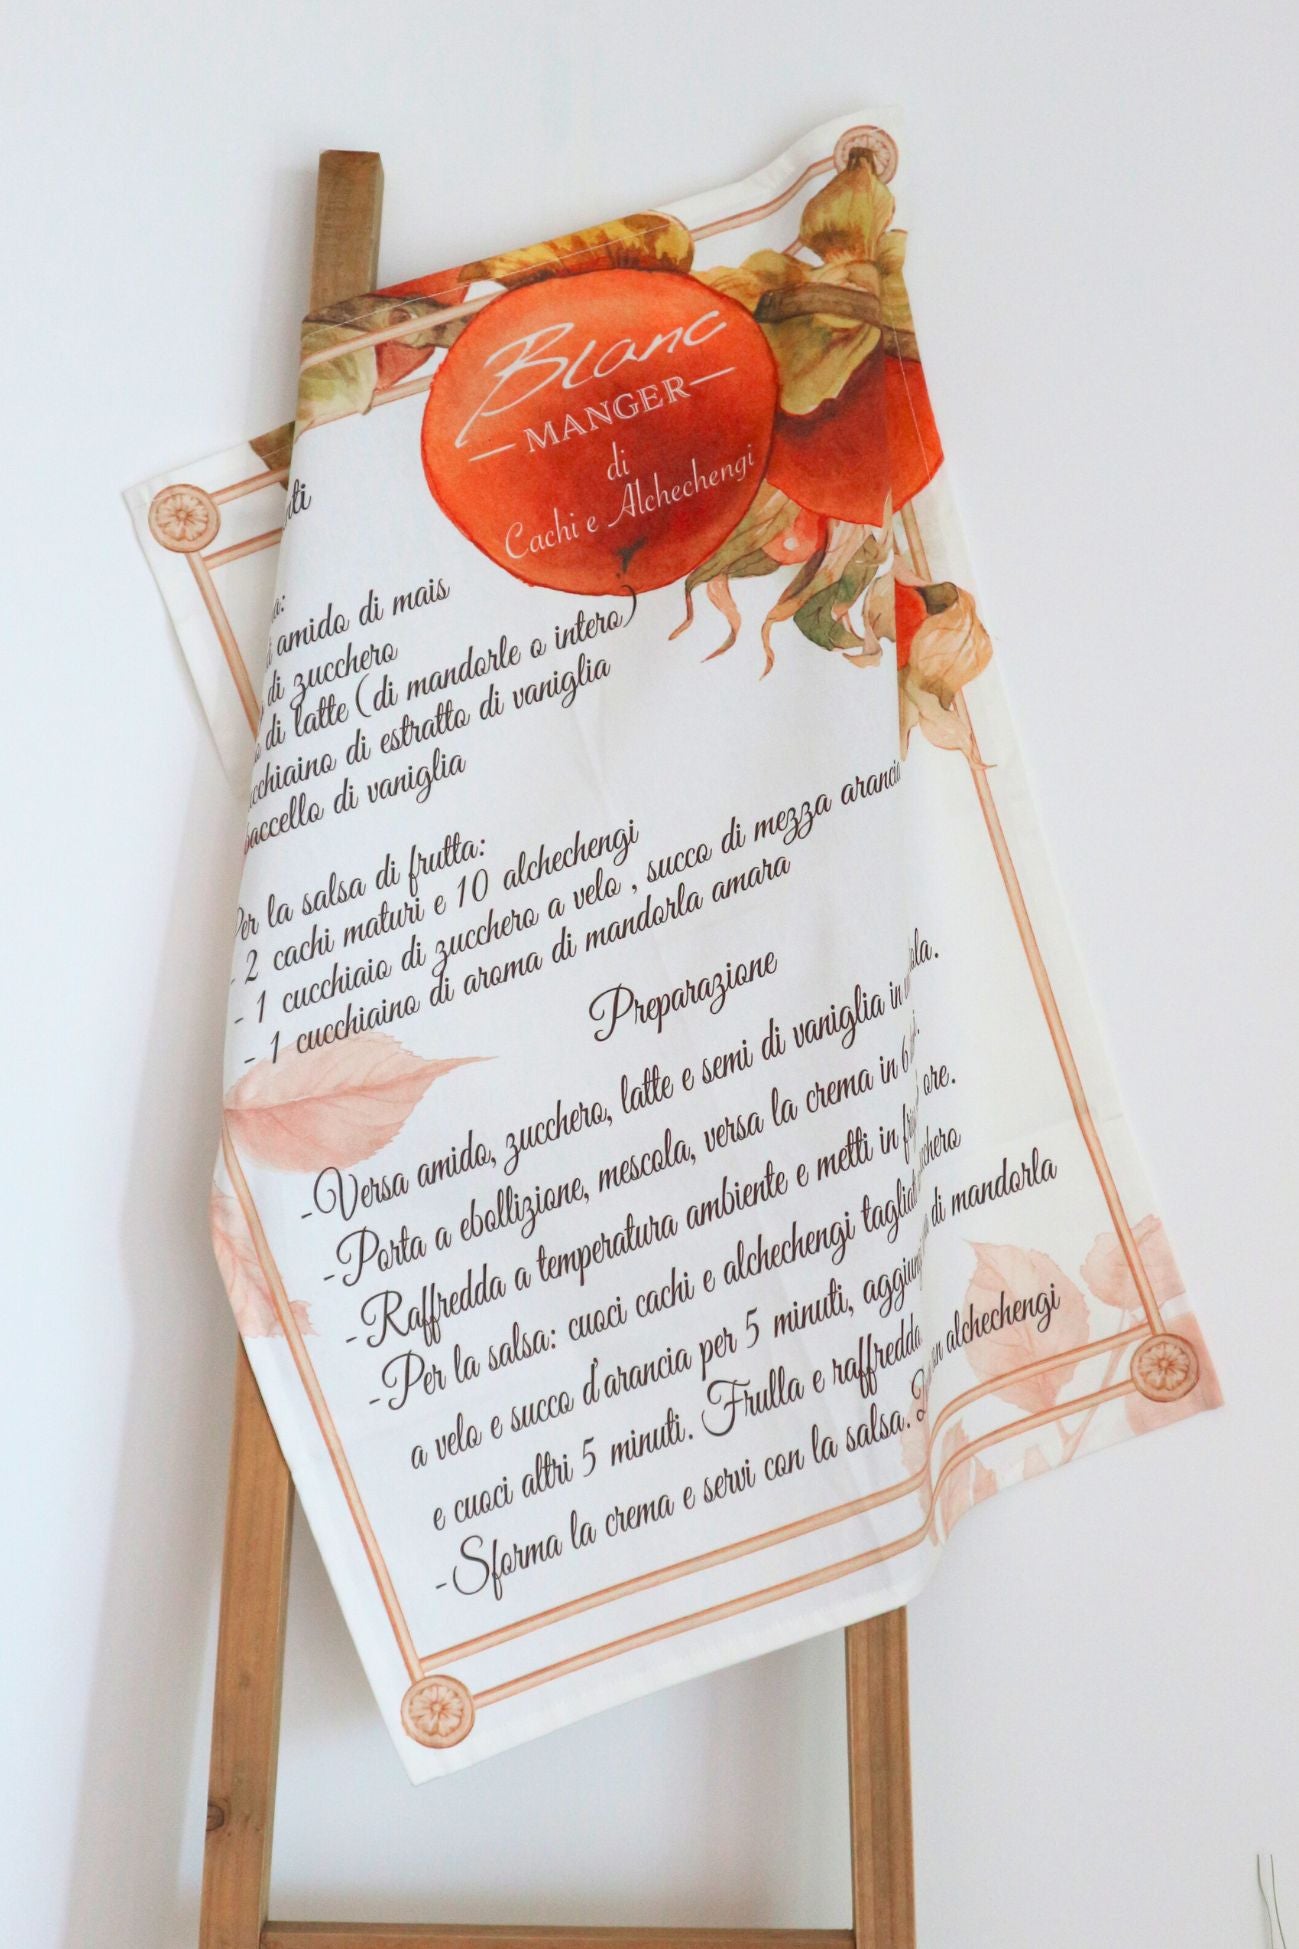 Blanc
MANGER
di
Cachi e Alchechengi
amido di mais
di zucchero
di latte (di mandorle o intero)
di estratto di vaniglia
di vaniglia
Per la salsa di frutta:
- 2 cachi maturi e 10 alchechengi
- 1 cucchiaio di zucchero a velo , succo di mezza arancia
- 1 cucchiaino di aroma di mandorla amara
Preparazione
-Versa amido, zucchero, latte e semi di vaniglia in
-Porta a ebollizione, mescola, versa la crema in 6
-Raffredda a temperatura ambiente e metti in ore.
-Per la salsa: cuoci cachi e alchechengi
a velo e succo d'arancia per 5 minuti, di mandorla
e cuoci altri 5 minuti. Frulla e raffredda
-Sforma la crema e servi con la salsa. alchechengi